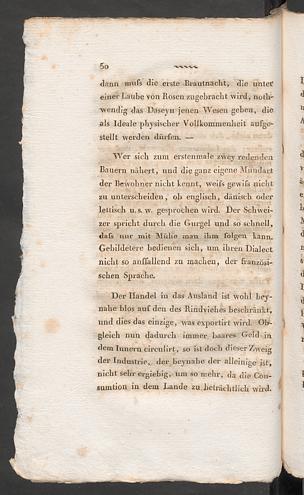 50
dann muſs die erste Brautnacht, die unter
einer Laube von Rosen zugebracht wird, noth-
wendig das Daseyn jenen Wesen geben, die
als Ideale physischer Vollkommenheit aufge-
stellt werden dürfen. —
Wer sich zum erstenmale zwey redenden
Bauern nähert, und die ganz eigene Mundart
der Bewohner nicht kennt, weiſs gewiſs nicht
zu unterscheiden, ob englisch, dänisch oder
lettisch u. s. w. gesprochen wird. Der Schwei-
zer spricht durch die Gurgel und so schnell,
daſs nur mit Mühe man ihm folgen kann.
Gebildetere bedienen sich, um ihren Dialect
nicht so auffallend zu machen, der französi-
schen Sprache.
Der Handel in das Ausland ist wohl bey-
nahe blos auf den des Rindviehes beschränkt,
und dies das einzige, was exportirt wird. Ob-
gleich nun dadurch immer baares Geld in
dem Innern circulirt, so ist doch dieser Zweig
der Industrie, der beynahe der alleinige ist,
nicht sehr ergiebig, um so mehr, da die Con-
sumtion in dem Lande zu beträchtlich wird.